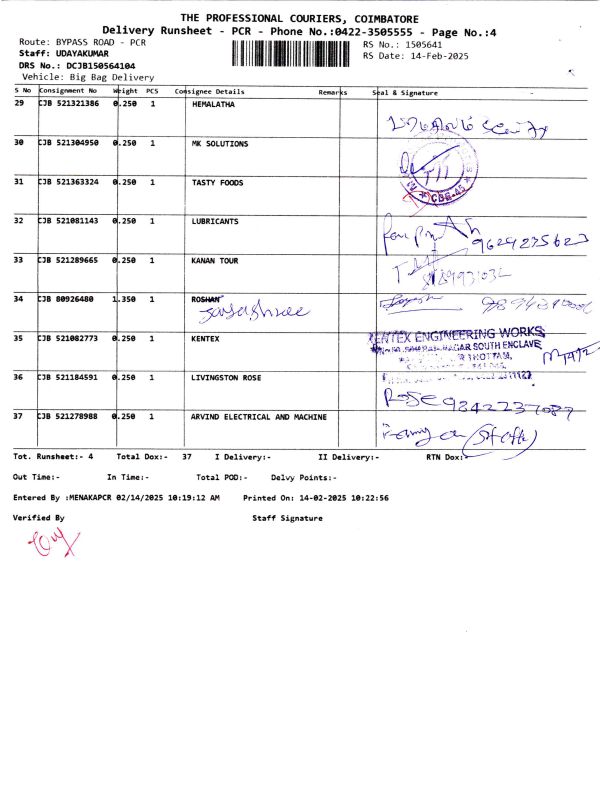 THE PROFESSIONAL COURIERS, COIMBATORE
Delivery Runsheet - PCR - Phone No.:0422-3505555 - Page No.:4
Route: BYPASS ROAD - PCR
RS No.: 1505641
Staff: UDAYAKUMAR
RS Date: 14-Feb-2025
DRS No.: DCJB150564104
Vehicle: Big Bag Delivery
S No Consignment No Weight PCS Consignee Details Remarks Seal & Signature
29 CJB 521321386 0.250 1 HEMALATHA
30 CJB 521304950 0.250 1 MK SOLUTIONS
CBE-45
31 CJB 521363324 0.250 1 TASTY FOODS
32 CJB 521081143 0.250 1 LUBRICANTS
9629235623
33 CJB 521289665 0.250 1 KANAN TOUR
34 CJB 80926480 1.350 1 ROSHAN
Jayashree
35 CJB 521082773 0.250 1 KENTEX KENTEX ENGINEERING WORKS
NAGAR SOUTH ENCLAVE,
36 CJB 521184591 0.250 1 LIVINGSTON ROSE
ROSE 9842237087
37 CJB 521278988 0.250 1 ARVIND ELECTRICAL AND MACHINE
(Staff)
Tot. Runsheet:- 4 Total Dox:- 37 I Delivery:- II Delivery:- RTN Dox:-
Out Time:- In Time:- Total POD:- Delvy Points:-
Entered By :MENAKAPCR 02/14/2025 10:19:12 AM Printed On: 14-02-2025 10:22:56
Verified By Staff Signature